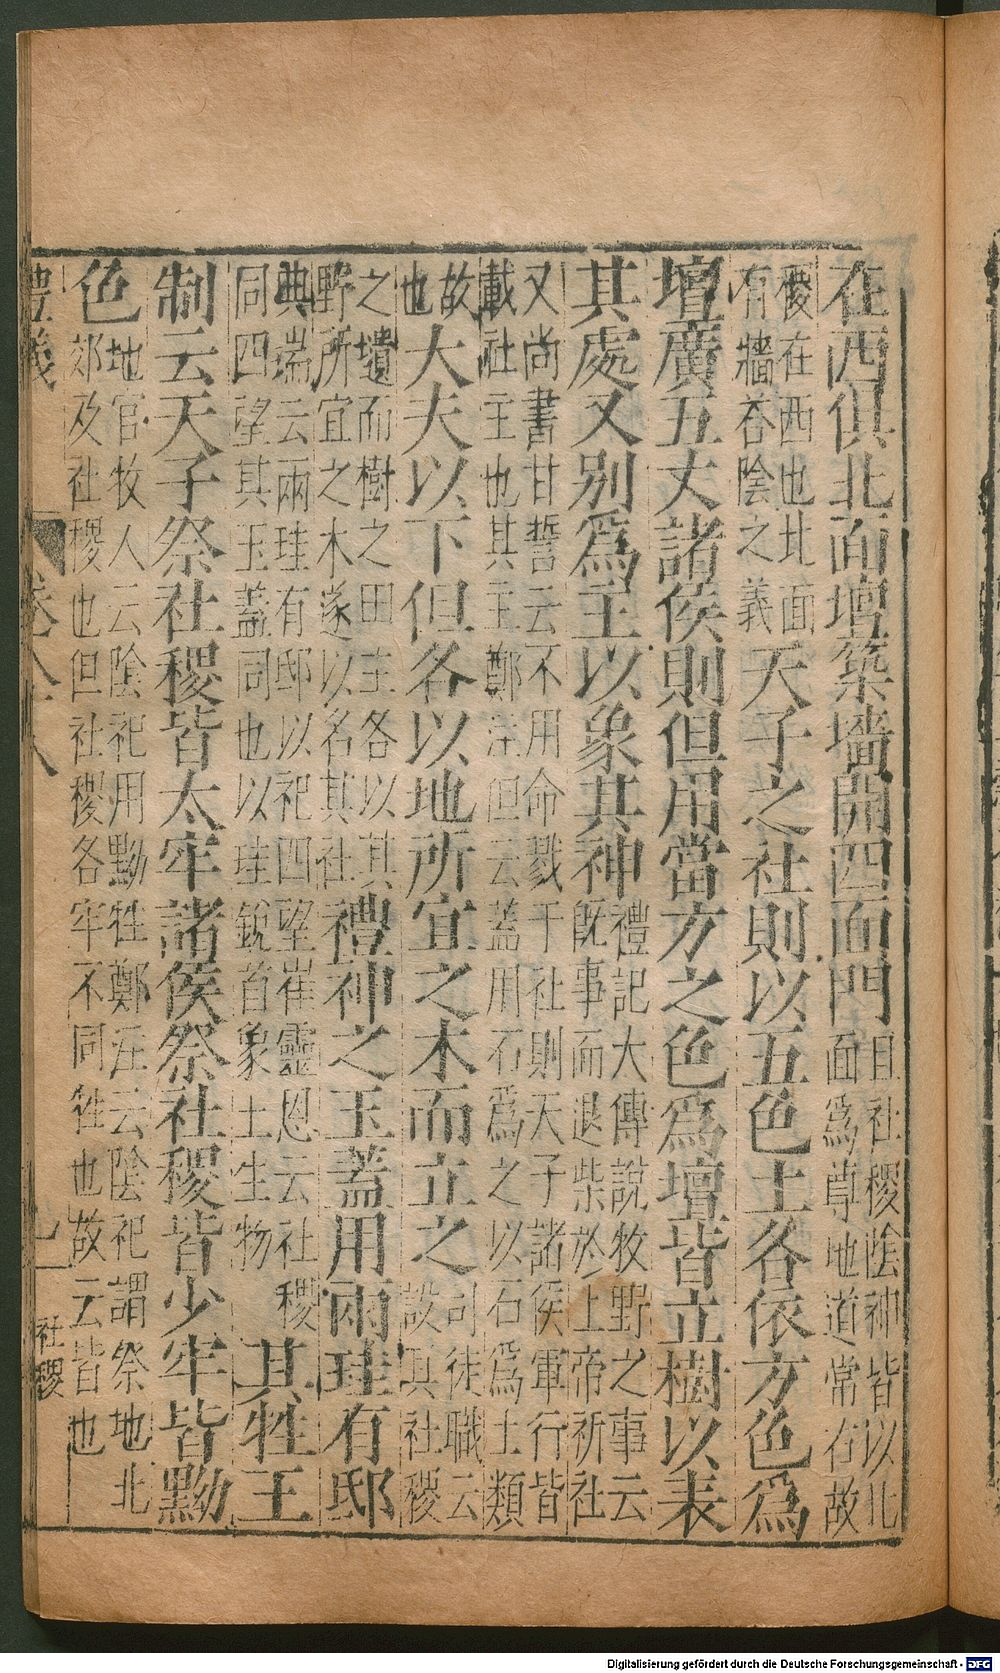 在西俱北面壇築墻開四面門自社稷陰神皆以北
面爲尊地道常右故
稷在西也北面
有牆春陰之義天子之社則以五色土各依方色爲
壇廣五丈諸侯則但用當方之色爲壇皆立樹以表
其處又别爲主以象其神禮記大傳說牧野之事云
既事而退柴於上帝祈社
又尚書甘誓云不用命戮于社則天子諸侯軍行皆
載社主也其主鄭注但云蓋用石爲之以石爲土類
故
也大夫以下但各以地所宜之木而立之司徒職云
設其社稷
之壝而樹之田主各以其
野所宜之木遂以名其社禮神之玉蓋用兩珪有邸
典瑞云兩珪有邸以祀四望崔靈恩云社稷
同四望其玉蓋同也以珪銳首象土生物其牲王
制云天子祭社稷皆太牢諸侯祭社稷皆少牢皆黝
色地官牧人云陰祀用黝牲鄭注云陰祀謂祭地北
郊及社稷也但社稷各牢不同牲也故云皆也
禮義 卷 社稷
Digitalisierung gefördert durch die Deutsche Forschungsgemeinschaft - DFG